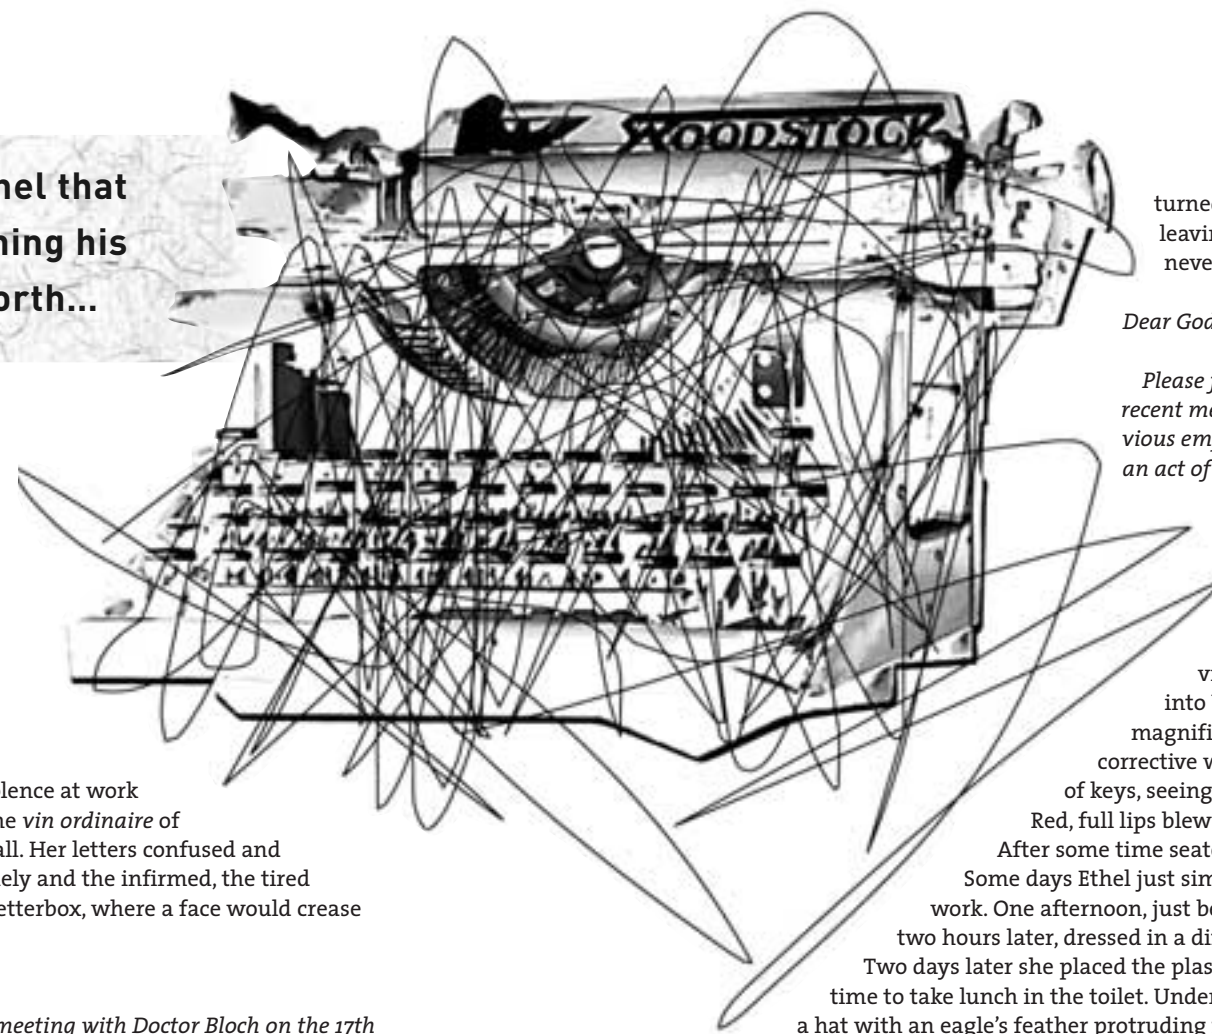 nel that
ning his
orth...
WOODSTOCK
lence at work
ne vin ordinaire of
all. Her letters confused and
ely and the infirmed, the tired
etterbox, where a face would crease
meeting with Doctor Bloch on the 17th
turne
leavin
neve
Dear God
Please
recent me
vious emp
an act of
v
into
magnifi
corrective
of keys, seeing
Red, full lips blew
After some time seate
Some days Ethel just sim
work. One afternoon, just be
two hours later, dressed in a di
Two days later she placed the plas
time to take lunch in the toilet. Under
a hat with an eagle's feather protruding